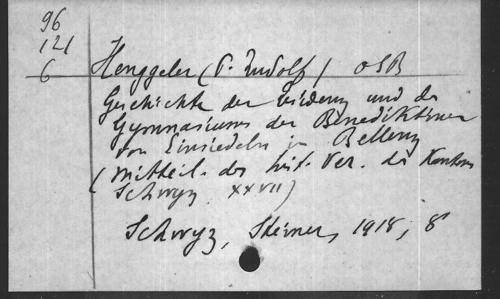 96
121
6
Henggeler (P. Rudolf) OSB
Geschichte der Residenz und des
Gymnasiums der Benediktiner
von Einsiedeln in Bellenz
(Mitteil. des hist. Ver. des Kantons
Schwyz XXVII)
Schwyz, Steiner, 1918, 8°